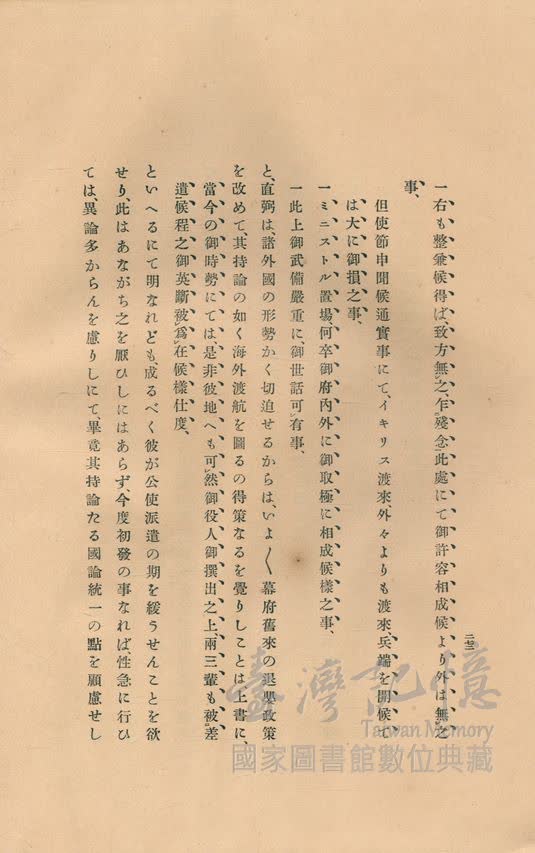 二三二
一右も整兼候得ば致方無之、乍殘念此處にて御許容相成候より外は無之
事、
但使節申聞候通實事にて、イキリス渡來外々よりも渡來、兵端を開候て
は大に御損之事、
一ミニストル置場、何卒御府內外に御取極に相成候樣之事、
一此上御武備嚴重に、御世話可有事、
と、直弼は、諸外國の形勢かく切迫せるからは、いよ〱幕府舊來の退嬰政策
を改めて、其持論の如く海外渡航を圖るの得策なるを覺りしことは上書に、
當今の御時勢にては、是非彼地へも可然御役人御撰出之上、兩三輩も被差
遣候程之御英斷被爲在候樣仕度、
といへるにて明なれども、成るべく彼が公使派遣の期を緩うせんことを欲
せり、此はあながち之を厭ひしにはあらず、今度初發の事なれば、性急に行ひ
ては、異論多からんを慮りしにて、畢竟其持論たる國論統一の點を顧慮せし
臺灣記憶
Taiwan Memory
國家圖書館數位典藏